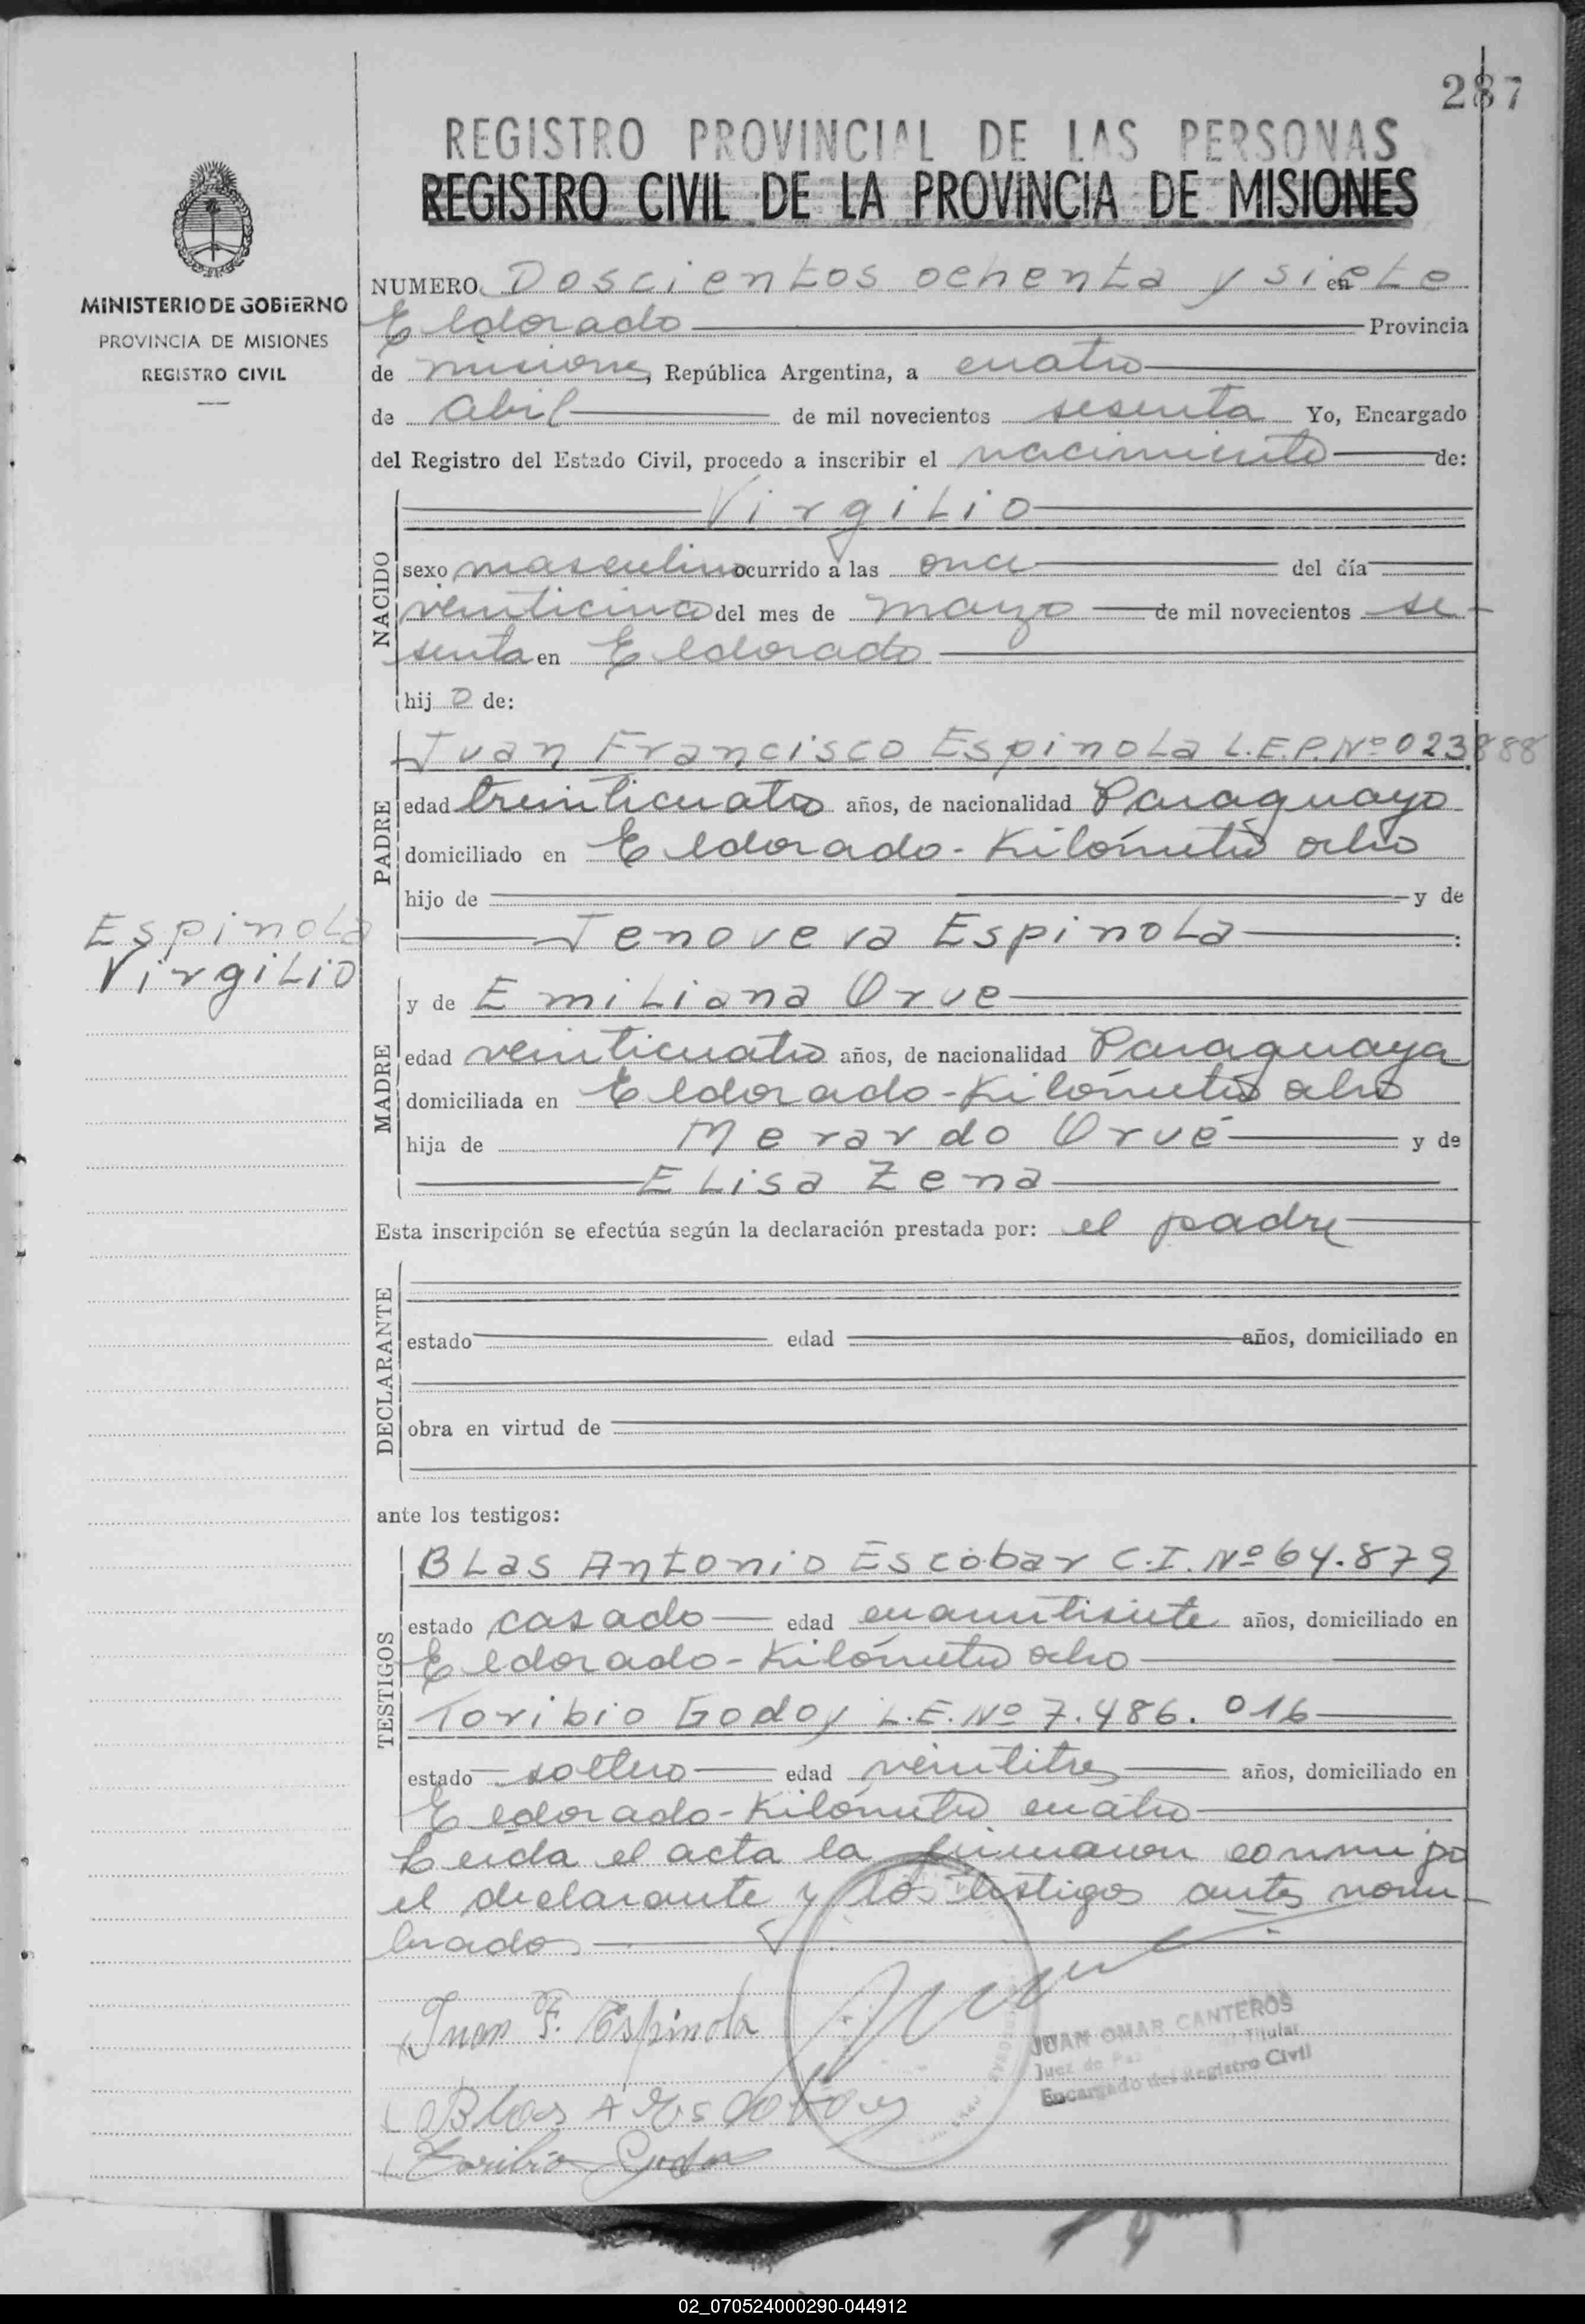 287
REGISTRO PROVINCIAL DE LAS PERSONAS
REGISTRO CIVIL DE LA PROVINCIA DE MISIONES
MINISTERIO DE GOBIERNO
PROVINCIA DE MISIONES
REGISTRO CIVIL
NUMERO Doscientos ochenta y siete en
Eldorado Provincia
de misiones, República Argentina, a cuatro
de abril de mil novecientos sesenta Yo, Encargado
del Registro del Estado Civil, procedo a inscribir el nacimiento de:
NACIDO
Virgilio
sexo masculino ocurrido a las once del día
veinticinco del mes de marzo de mil novecientos se-
senta en Eldorado
hijo de:
PADRE
Juan Francisco Espinola L.E.P. Nº 023888
edad treinticuatro años, de nacionalidad Paraguayo
domiciliado en Eldorado - Kilómetro ocho
hijo de y de
Jenoveva Espinola:
Espinola
Virgilio
MADRE
y de Emiliana Orue
edad veinticuatro años, de nacionalidad Paraguaya
domiciliada en Eldorado - Kilómetro ocho
hija de Merardo Orué y de
Elisa Zena
Esta inscripción se efectúa según la declaración prestada por: el padre
DECLARANTE
estado edad años, domiciliado en
obra en virtud de
ante los testigos:
TESTIGOS
Blas Antonio Escobar C.I. Nº 64.879
estado casado edad cuarentisiete años, domiciliado en
Eldorado - Kilómetro ocho
Toribio Godoy L.E. Nº 7.486.016
estado soltero edad veintitres años, domiciliado en
Eldorado - Kilómetro cuatro
Leída el acta la firmaron conmigo
el declarante y los testigos antes nom-
brados
Juan F. Espinola
JUAN OMAR CANTEROS
Juez de Paz Titular
Encargado del Registro Civil
Blas A Escobar
Toribio Godoy
02_070524000290-044912